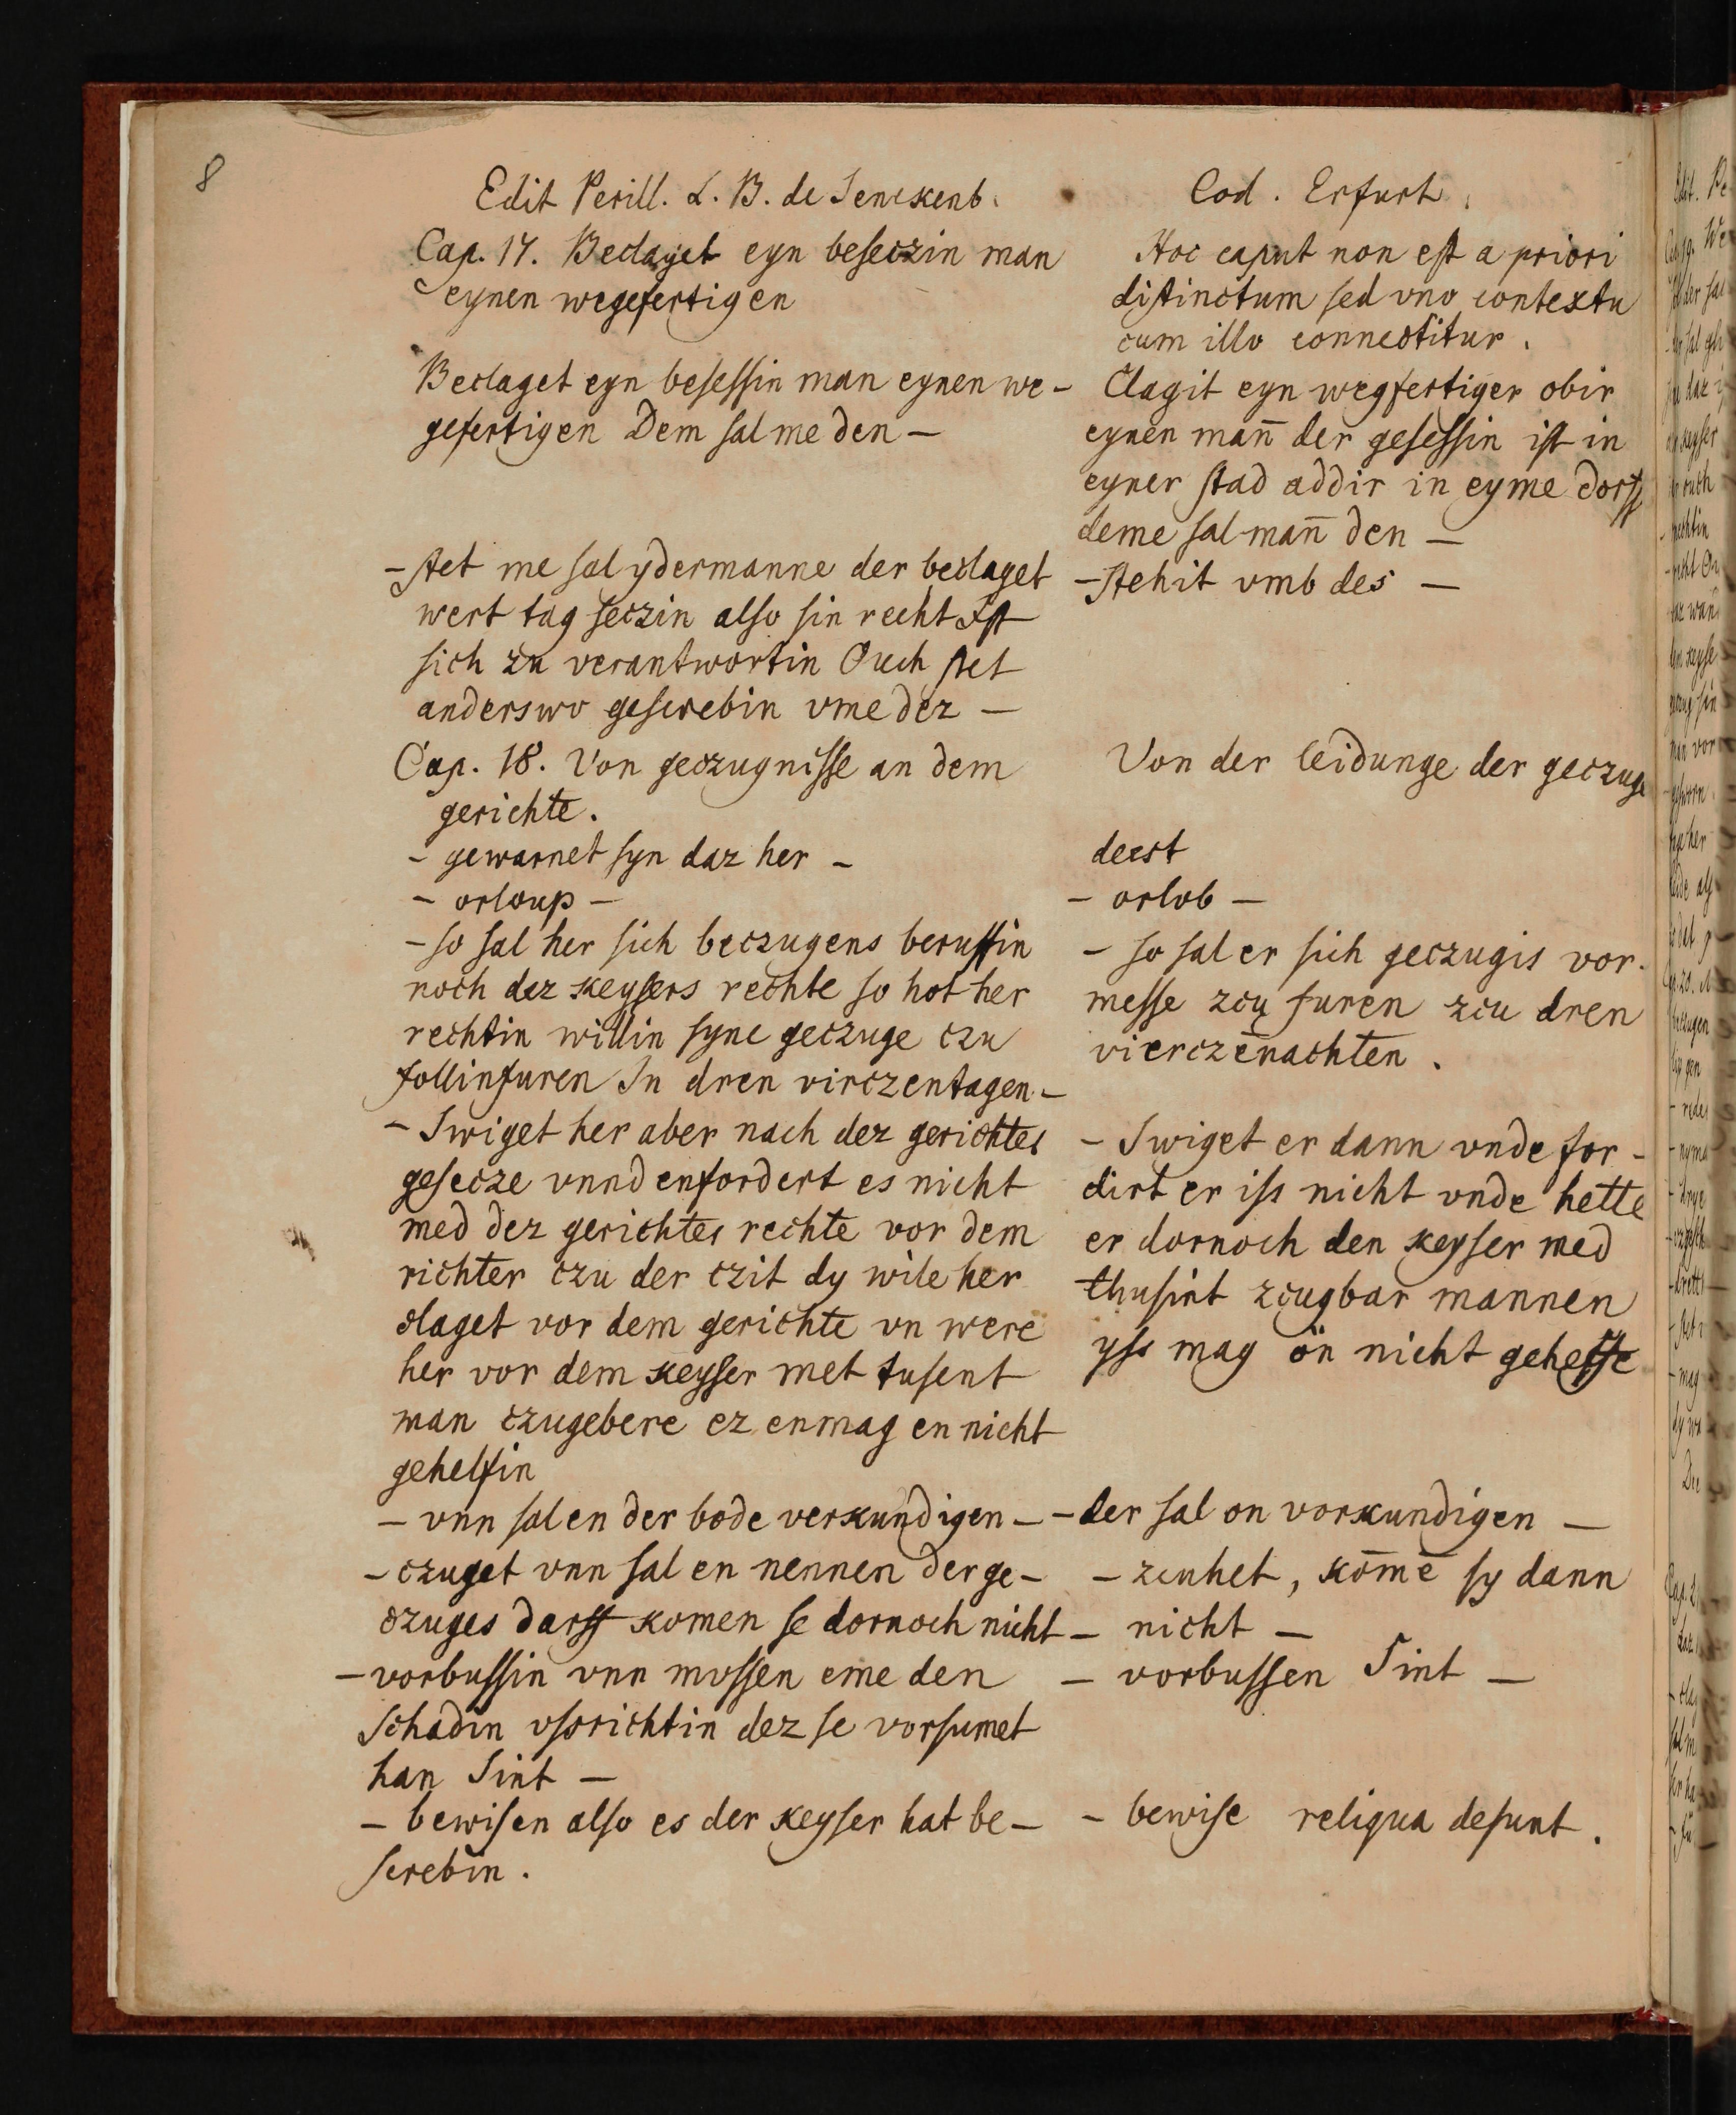 8
Edit Perill. L. B. de Senckenb.
Cap. 17. Beclaget eyn beseczin man
eynen wegefertigen
Beclaget eyn besessin man eynen we-
gefertigen Dem sal me den –
– stet me sal ydermanne der beclaget
wert tag seczin also sin recht Ist
sich zu verantwortin Ouch stet
anderswo gescrebin vme dez –
Cap. 18. Von geczugnisse an dem
gerichte.
– gewarnet syn daz her –
– orloup –
– so sal her sich beczugens beruffin
noch dez keysers rechte so hot her
rechtin willin syne geczuge czu
follinfuren In dren virczentagen –
– Swiget her aber nach dez gerichtes
gesecze vnnd enfordert es nicht
med dez gerichtes rechte vor dem
richter czu der czit dy wile her
claget vor dem gerichte vn were
her vor dem keyser met tusent
man czugebere ez enmag en nicht
gehelfin
– vnn sal en der bode verkundigen –
– czuget vnn sal en nennen der ge-
czuges darff komen se dornoch nicht
– vorbussin vnn mussen eme den
schadin vssrichtin dez se vorsumet
han Sint –
– bewisen also es der keyser hat be-
screbin.
Cod. Erfurt.
Hoc caput non est a priori
distinctum sed vno contextu
cum illo connectitur.
Clagit eyn wegfertiger obir
eynen man̄ der gesessin ist in
eyner stad addir in eyme dorff
deme sal man̄ den –
– stehit vmb des –
Von der leidunge der geczuge
deest
– orlob –
– so sal er sich geczugis vor-
messe zcu furen zcu dren
vierczēnachten.
– Swiget er dann vnde for-
dirt er iss nicht vnde hette
er dornoch den keyser med
thusint zcugbar mannen
yss mag ön nicht gehelffe
– der sal on vorkundigen –
– zcuhet, kom̄ē sy dann
– nicht –
– vorbussen Sint –
– bewise reliqua desunt.